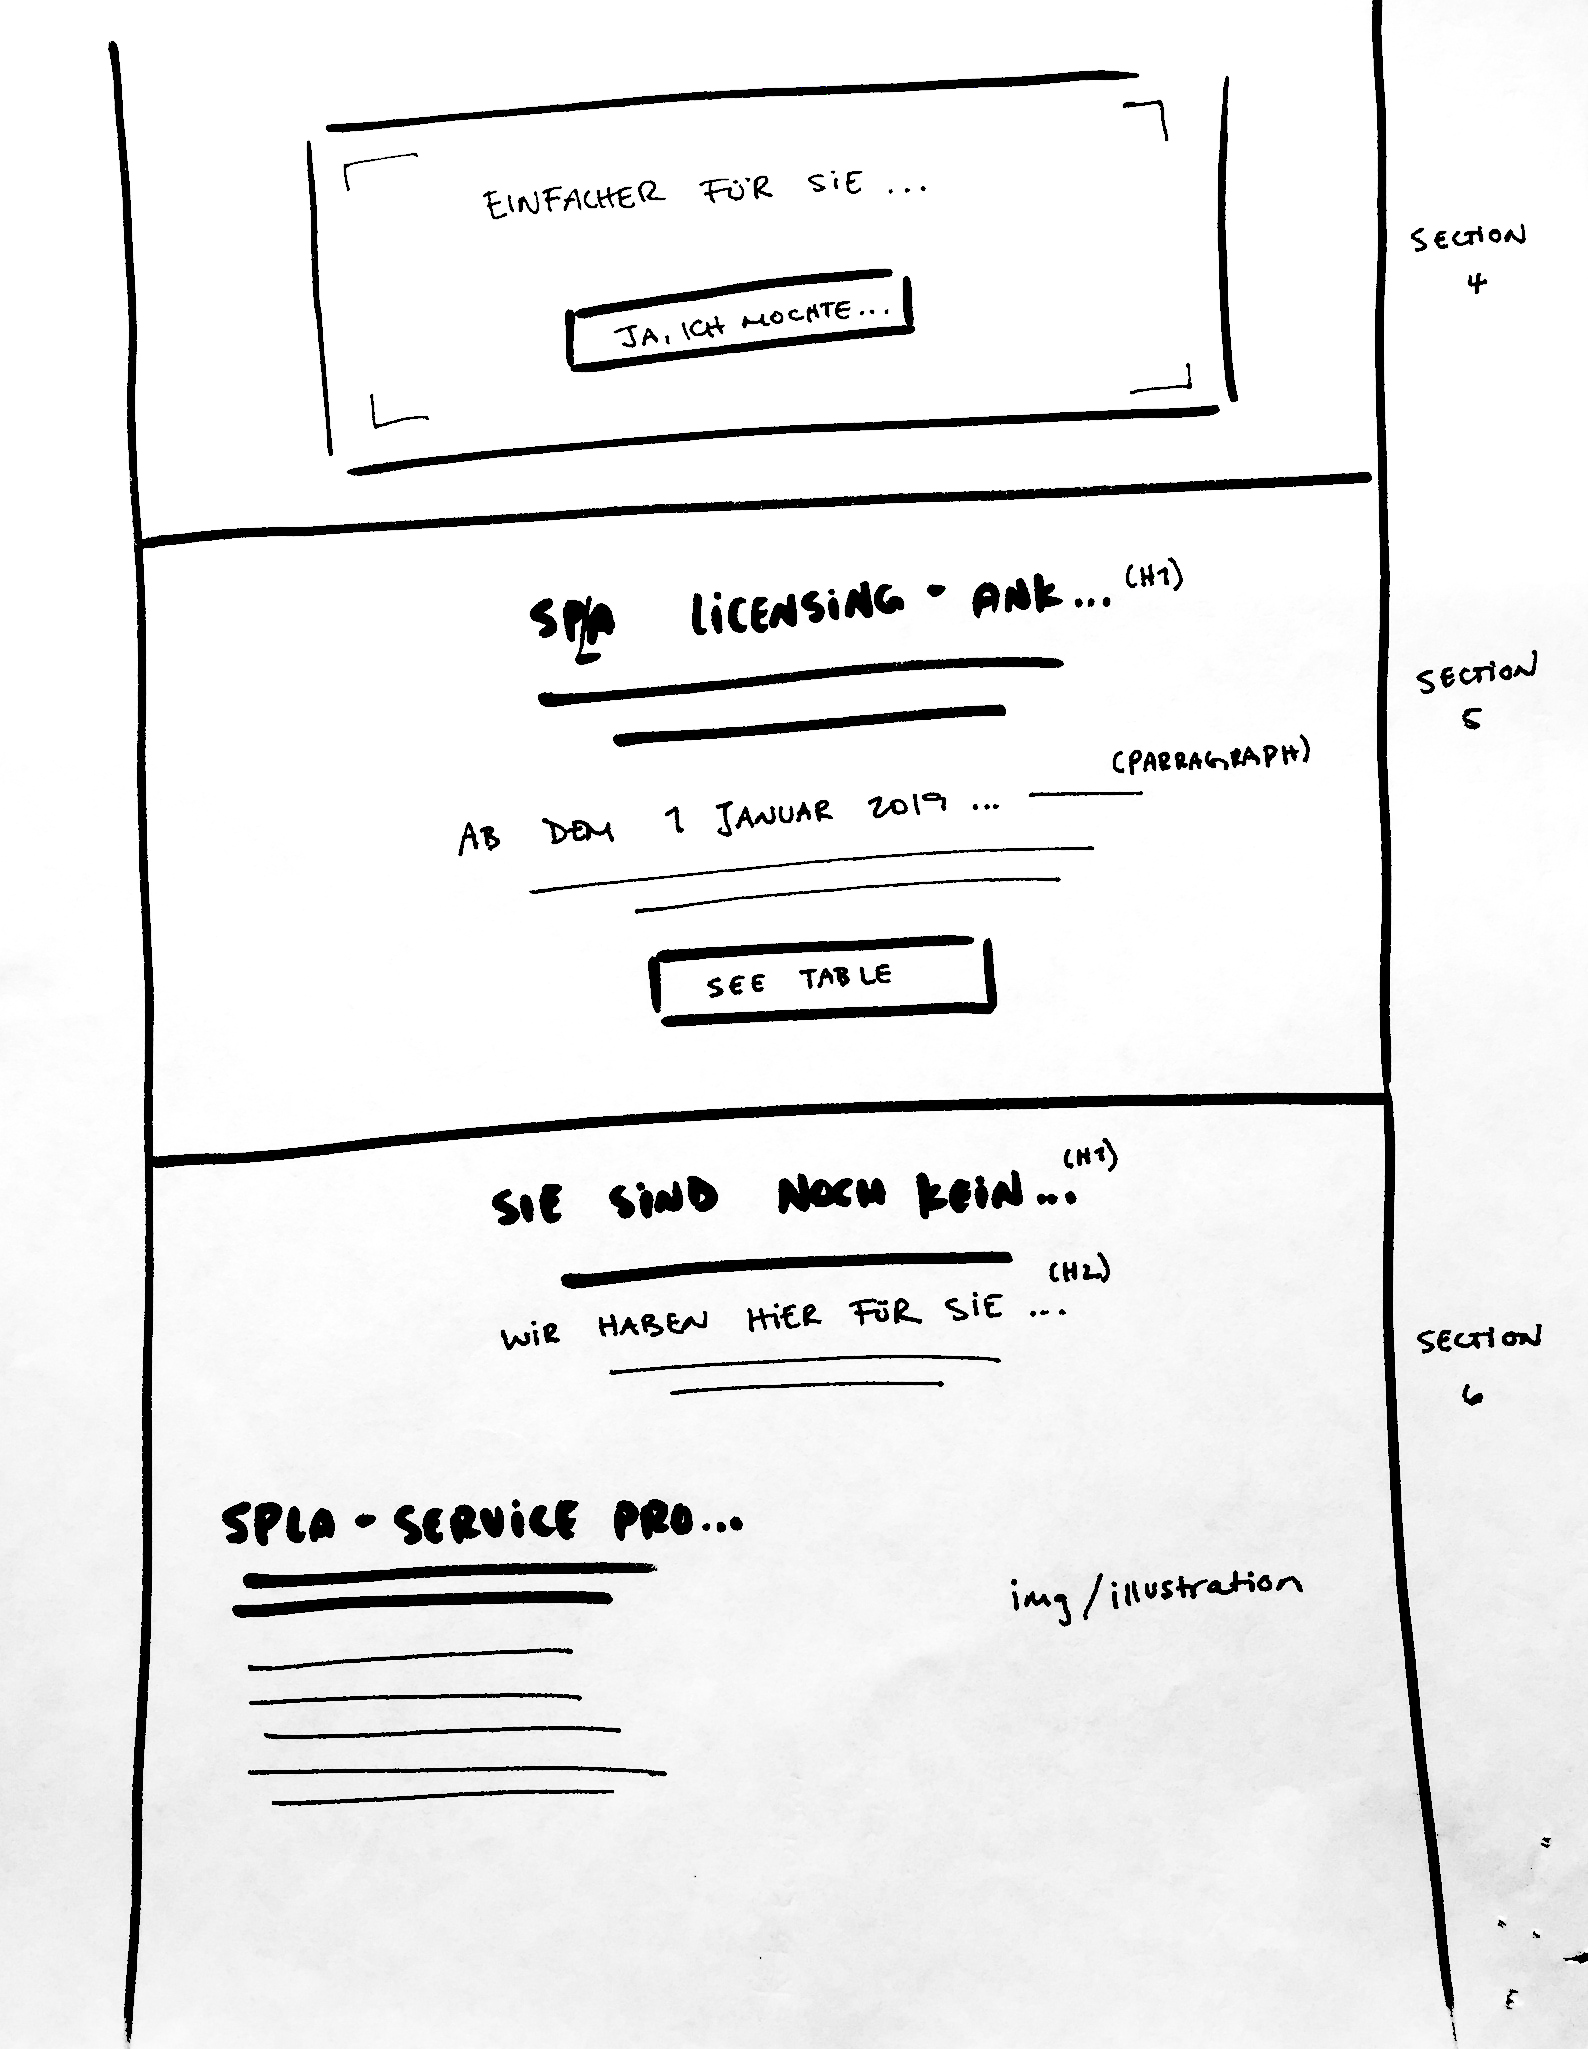 EINFACHER FÜR SiE ...
JA, ICH MOCHTE...
SECTION
4
SPLA LiCENSiNG - ANK... (H1)
SECTION
5
(PARRAGRAPH)
AB DEM 1 JANUAR 2019 ...
SEE TABLE
SIE SiND NOCH KEiN... (H1)
(H2)
WiR HABEN HiER FÜR SiE ...
SECTION
6
SPLA - SERViCE PRO...
img/illustration